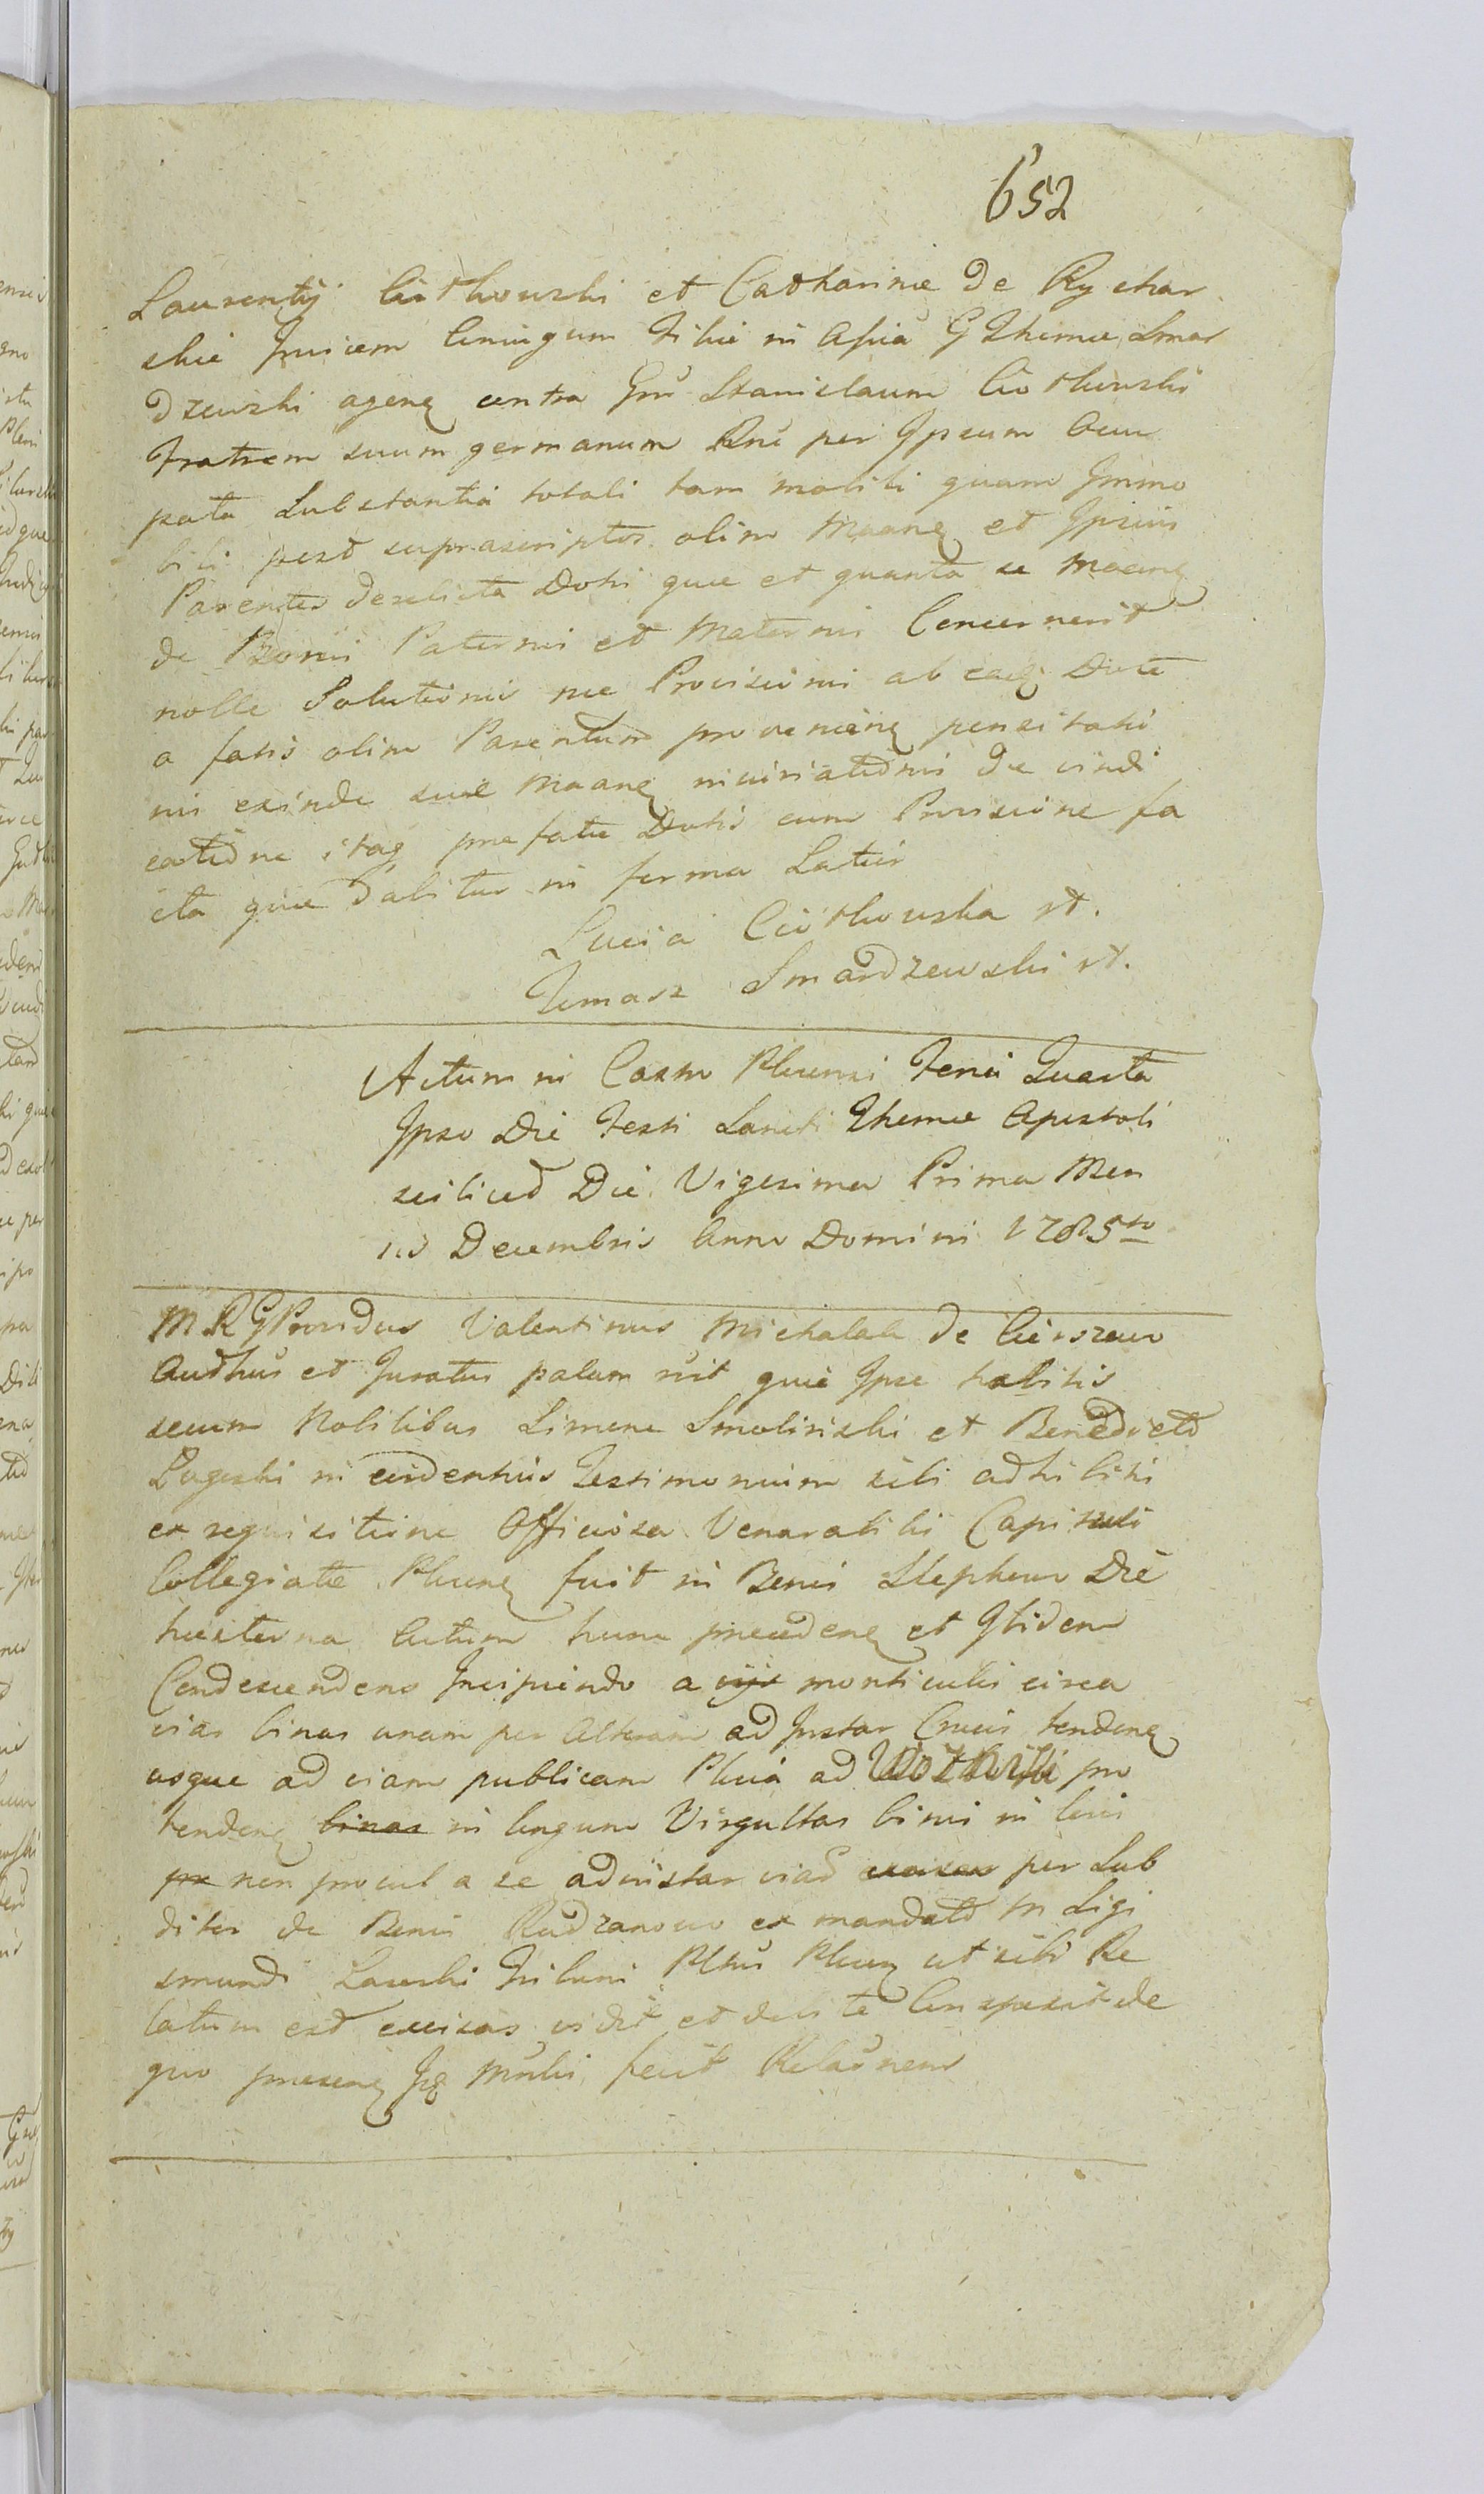 652
Laurentij Ciotkowski et Catharinæ de Rychar
skie Invicem Coniugum Filiæ in Assia G Thomæ Smar
dzewski ageñ contra Gm̄ Stanislaum Ciotkowski
Fratrem suum germanum Rne per Ipsum Occu
pata Substantia totali tam mobili quam Immo
bili post suprascriptos olim Maaneñ et Ipsius
Parentes derelicta Doti quæ et quanta se Maaneñ
de Bonis Paternis et Maternis Concernerit
nolle Solutionis nec Provisionis ab eadem Dote
a fatis olim Parentum provenieñ pensitatio
nis exinde suæ Maaneñ iniuriationis de vindi
catione itaq præfatæ Dotis cum Provisione fa
cta quæ dabitur in forma Latius
Lucia Ciotkowska st.
Tomasz Smardzewski st.
Actum in Castro Plocensi Feria Quarta
Ipso Die Festi Sancti Thomæ Apostoli
scilicet Die Vigesima Prima Men
sis Decembris Anno Domini 1785to
M R G Providus Valentinus Michalak de Cieszewo
Authus et Juratus palam rēt quia Ipse habitis
secum Nobilibus Simone Smolinski et Benedicto
Lugoski in evidentius Testimonium sibi adhibitis
ex requisitione Officiosa Venerabilis Capituli
Collegiatæ Ploceñ fuit in Bonis Slepkowo Die
hesterna Actum hunc præcedeñ et Ibidem
Condescendens Incipiendo a vijs monticulis circa
vias binas unam per Alteram ad Instar Crucis tendeñ
usque ad viam publicam Plocia ad pro
tendeñ binas in longum Virgultas binis in locis
pr non procul a se ad instar viae per Sub
ditos de Bonis Radzanowo ex mandato M Sigi
smundi Lasocki Tribuni Pltus Ploceñ ut sibi Re
latum est excisas vidit et debite Conspexit de
quo præseñ Jē Mnlis fecit Relaōnem